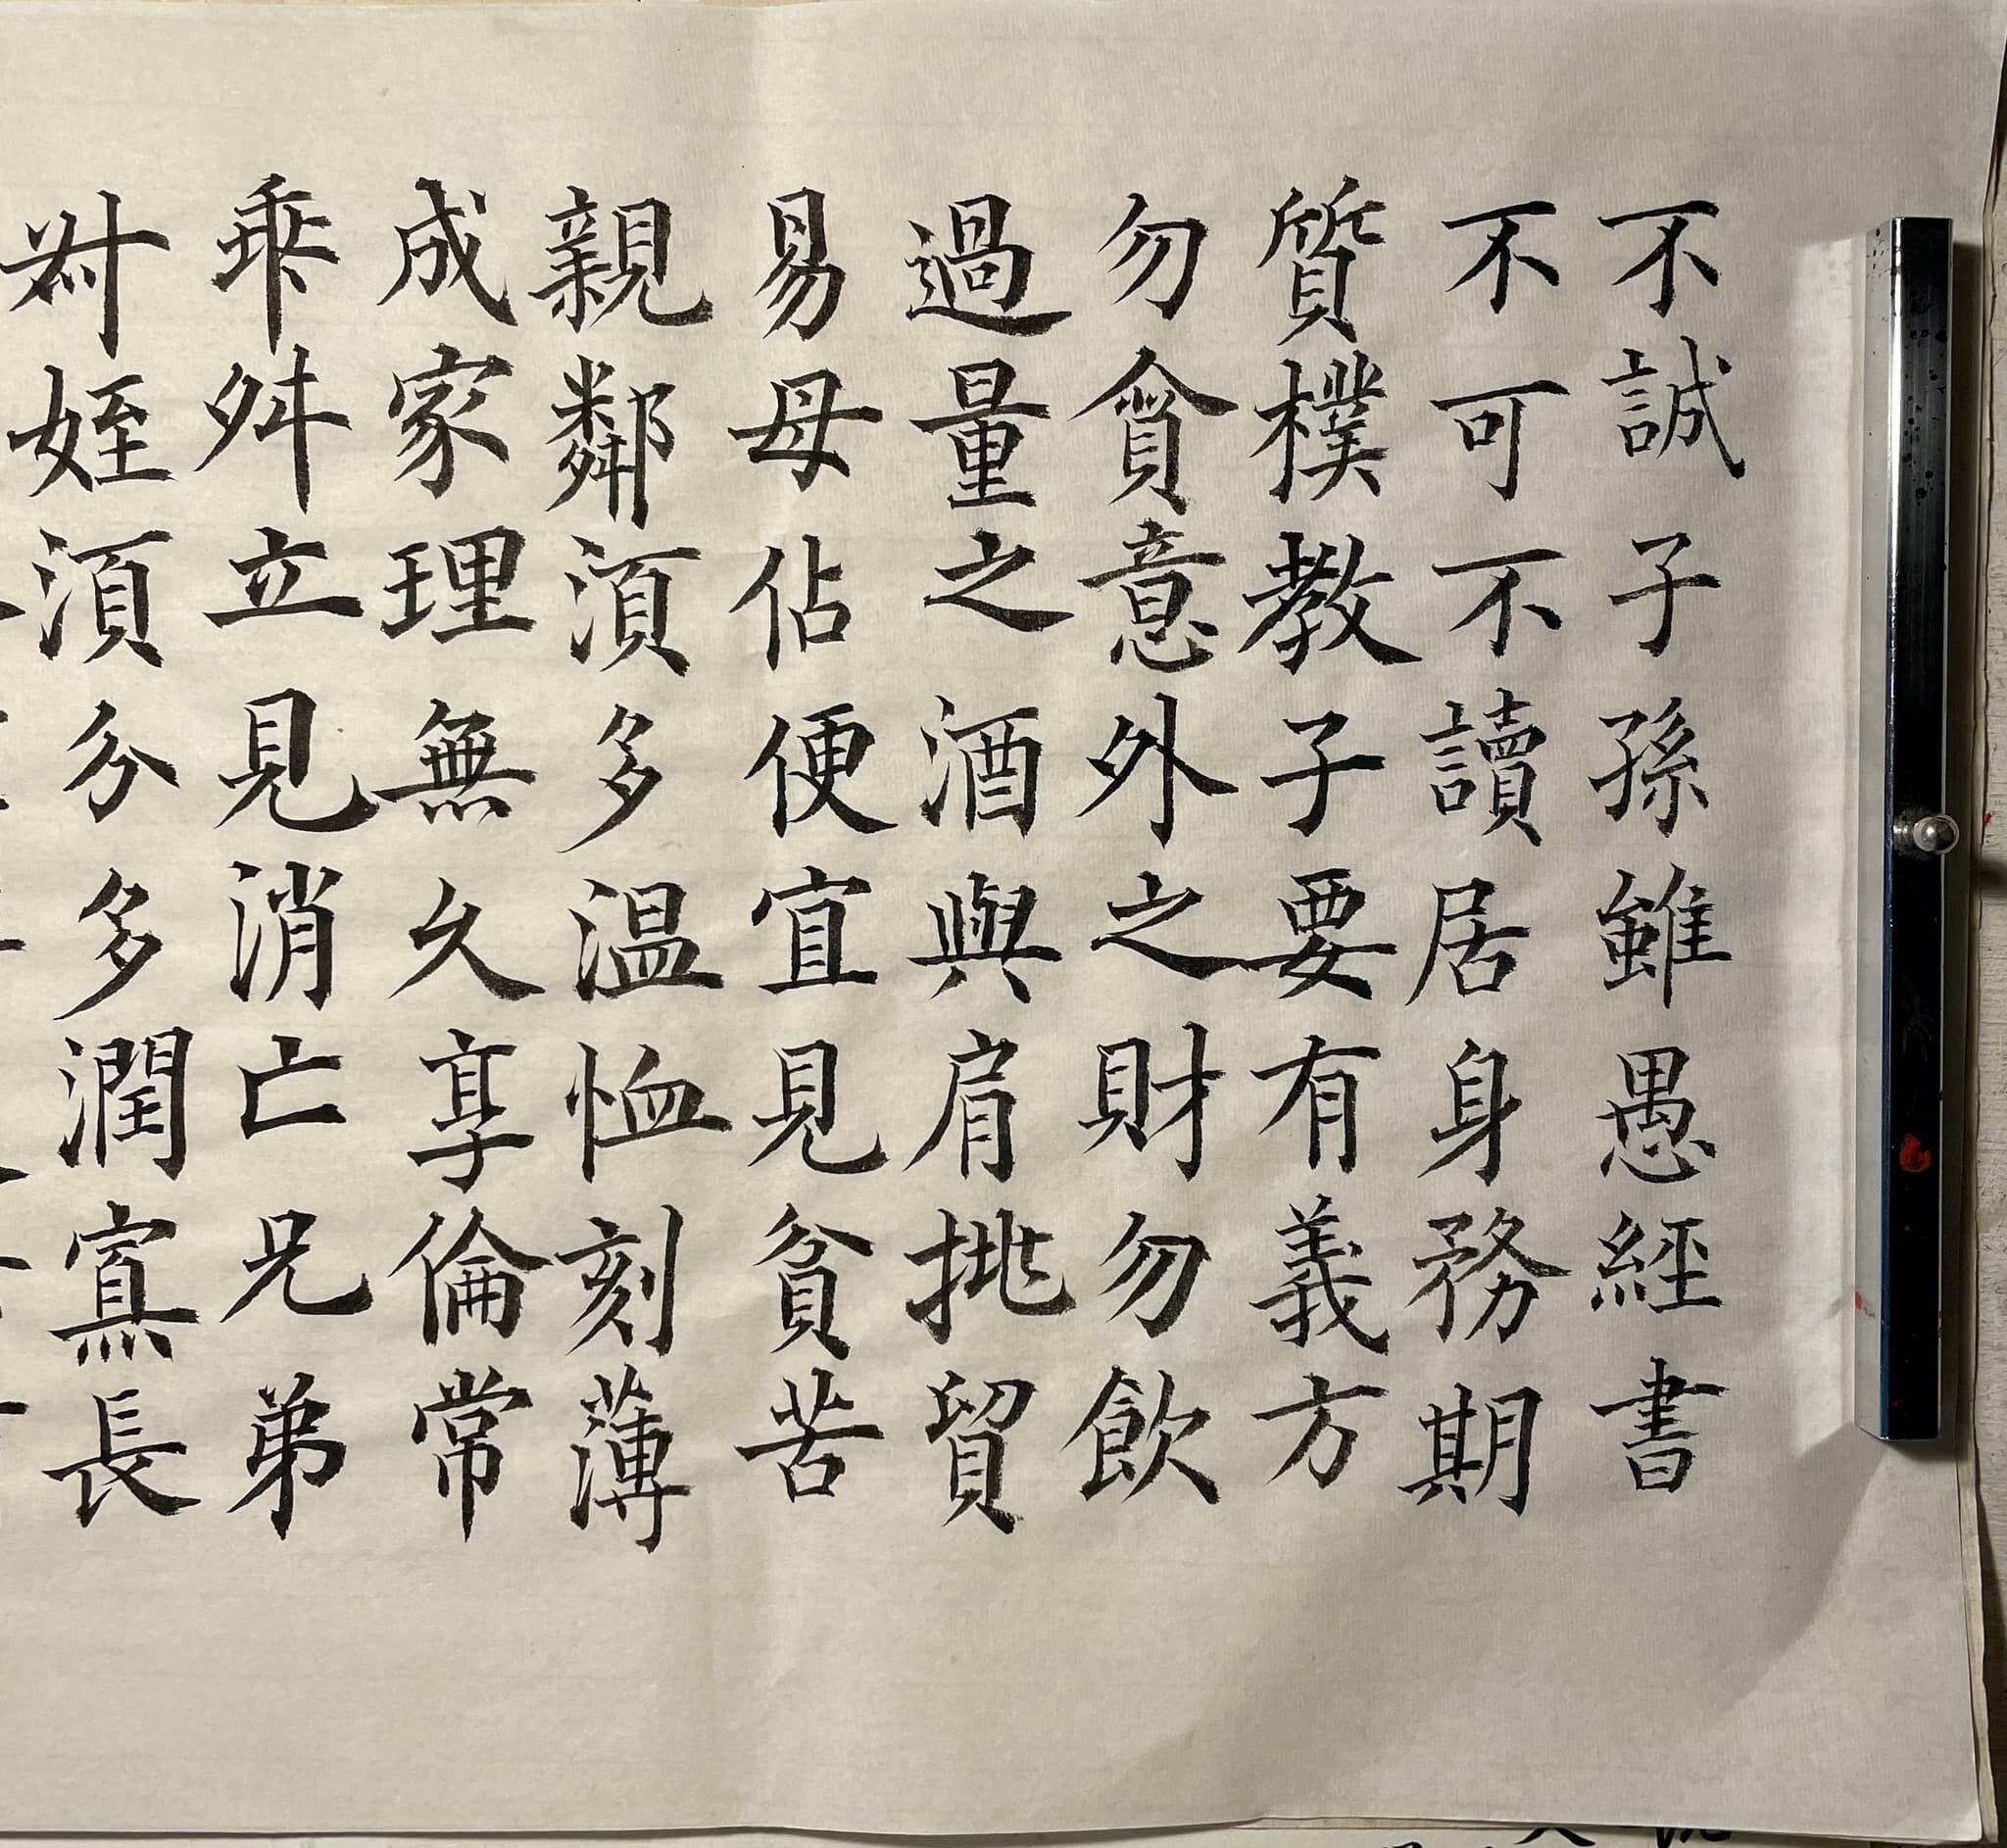 不誠子孫雖愚經書
不可不讀居身務期
質樸教子要有義方
勿貪意外之財勿飲
過量之酒與肩挑貿
易毋佔便宜見貧苦
親鄰須多溫恤刻薄
成家理無久享倫常
乖舛立見消亡兄弟
叔姪須分多潤寡長